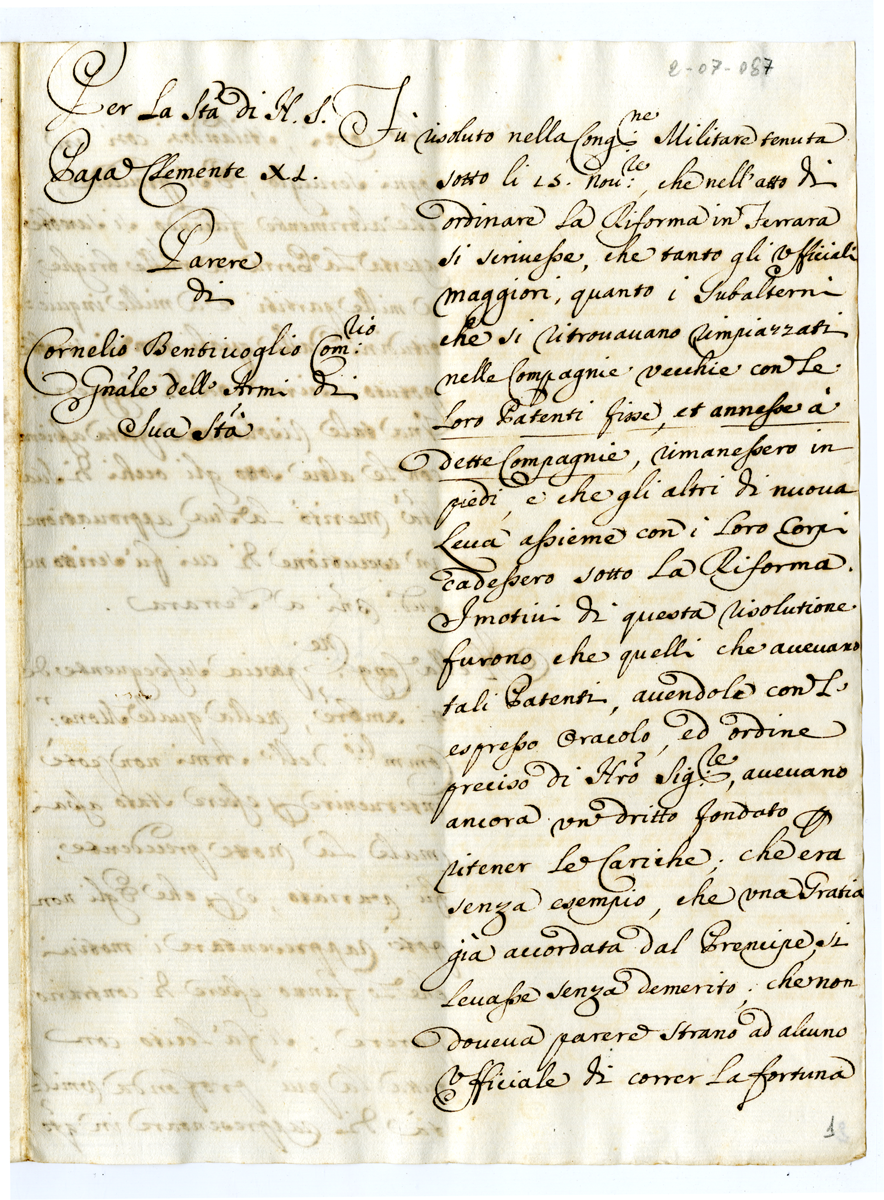 2-07-087
Per La Stà di N. S.
Papa Clemente XI.
Parere
di
Cornelio Bentivoglio Com:rio
Gnãle dell'Armi di
Sua Stà
Fù risoluto nella Cong:ne Militare tenuta
sotto li 15. Nou:re, che nell'atto di
ordinare La Riforma in Ferrara
si scriuesse, che tanto gli Vfficiali
maggiori, quanto i Subalterni
che si ritrouauano rimpiazzati
nelle Compagnie vecchie con Le
Loro Patenti fisse, et annesse à
dette Compagnie, rimanessero in
piedi, e che gli altri di nuoua
Leua assieme con i Loro Corpi
cadessero sotto La Riforma.
I motiui di questa risolutione
furono che quelli che aueuano
tali Patenti, auendole con L'
espresso Oracolo, ed ordine
preciso di Nrõ Sig:re, aueuano
ancora vn dritto fondato p
ritener Le Cariche; che era
senza esempio, che vna Gratia
già accordata dal Prencipe, si
Leuasse senza demerito; che non
doueua parere strano ad alcuno
Vfficiale di correr La fortuna